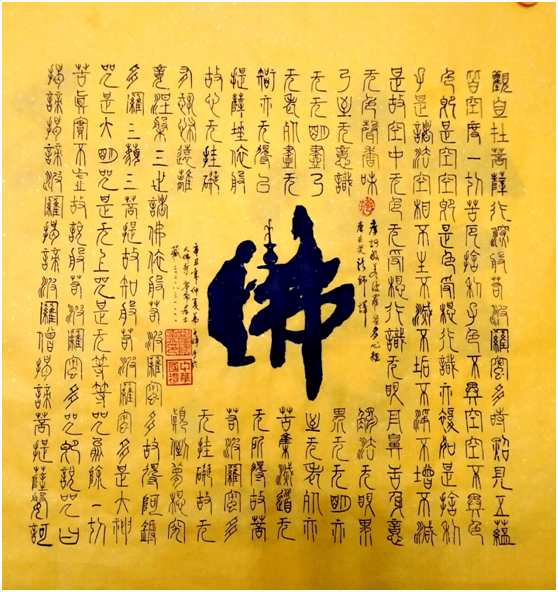 觀自在菩薩行深般若波羅蜜多時照見五蘊
皆空度一切苦厄捨利子色不異空空不異色
色即是空空即是色受想行識亦復如是捨利
子是諸法空相不生不滅不垢不淨不增不減
是故空中无色无受想行識无眼耳鼻舌身意
无色聲香味
觸法无眼界
乃至无意識
界无无明亦
无无明盡乃
至无老死亦
无老死盡无
苦集滅道无
智亦无得以
无所得故菩
提薩埵依般
若波羅蜜多
故心无挂礙
无挂礙故无
有恐怖遠離
顛倒夢想究
竟涅槃三世諸佛依般若波羅蜜多故得阿耨
多羅三藐三菩提故知般若波羅蜜多是大神
咒是大明咒是无上咒是无等等咒能除一切
苦真實不虛故說般若波羅蜜多咒即說咒曰
揭諦揭諦波羅揭諦波羅僧揭諦菩提薩婆訶
佛